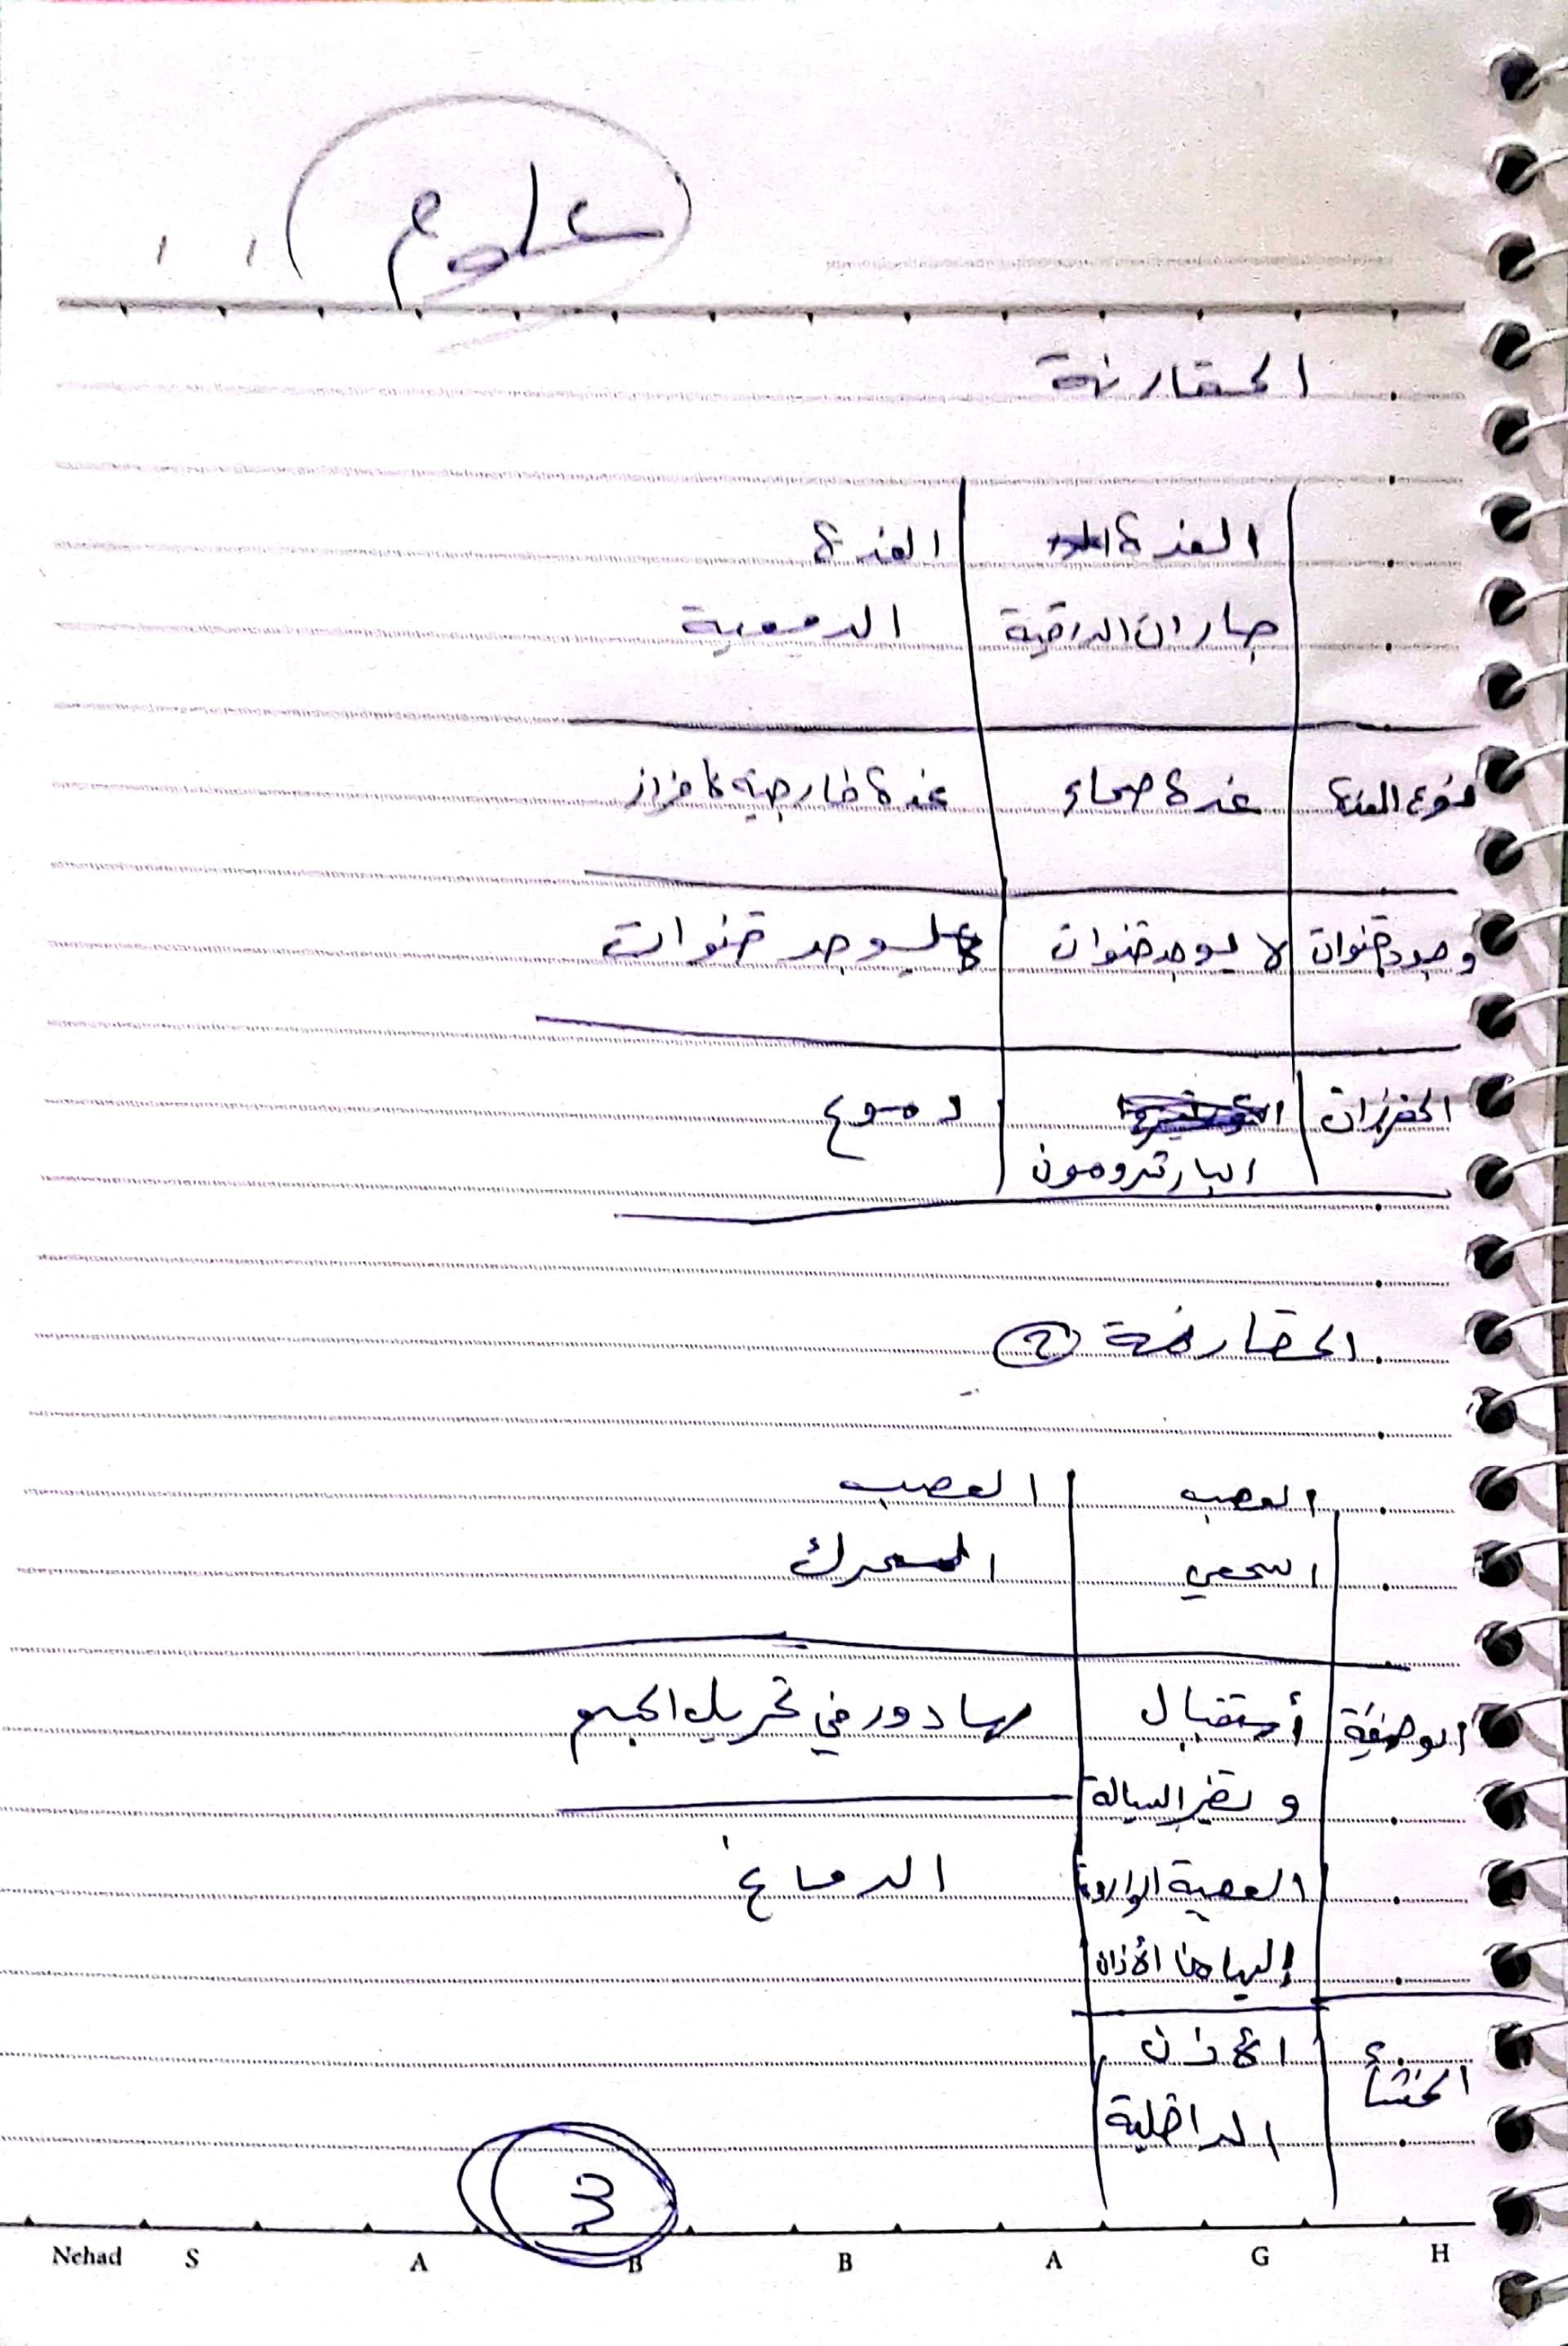 علوم
المقارنة
الغدة الغدة
جاران الدرقية الدمعية
نوع الغدة غدة صماء غدة خارجية الافراز
وجود قنوات لا يوجد قنوات يوجد قنوات
المفرزات دموع
الباراثرومون
المقارنة ٢
العصب العصب
السمعي المحرك
الوظيفة أستقبال لها دور في تحريك الجسم
و السيالة
العصبية الواردة الدماغ
إليها من الأذان
المنشأ الأذن
الداخلية
3
Nehad S A B B A G H